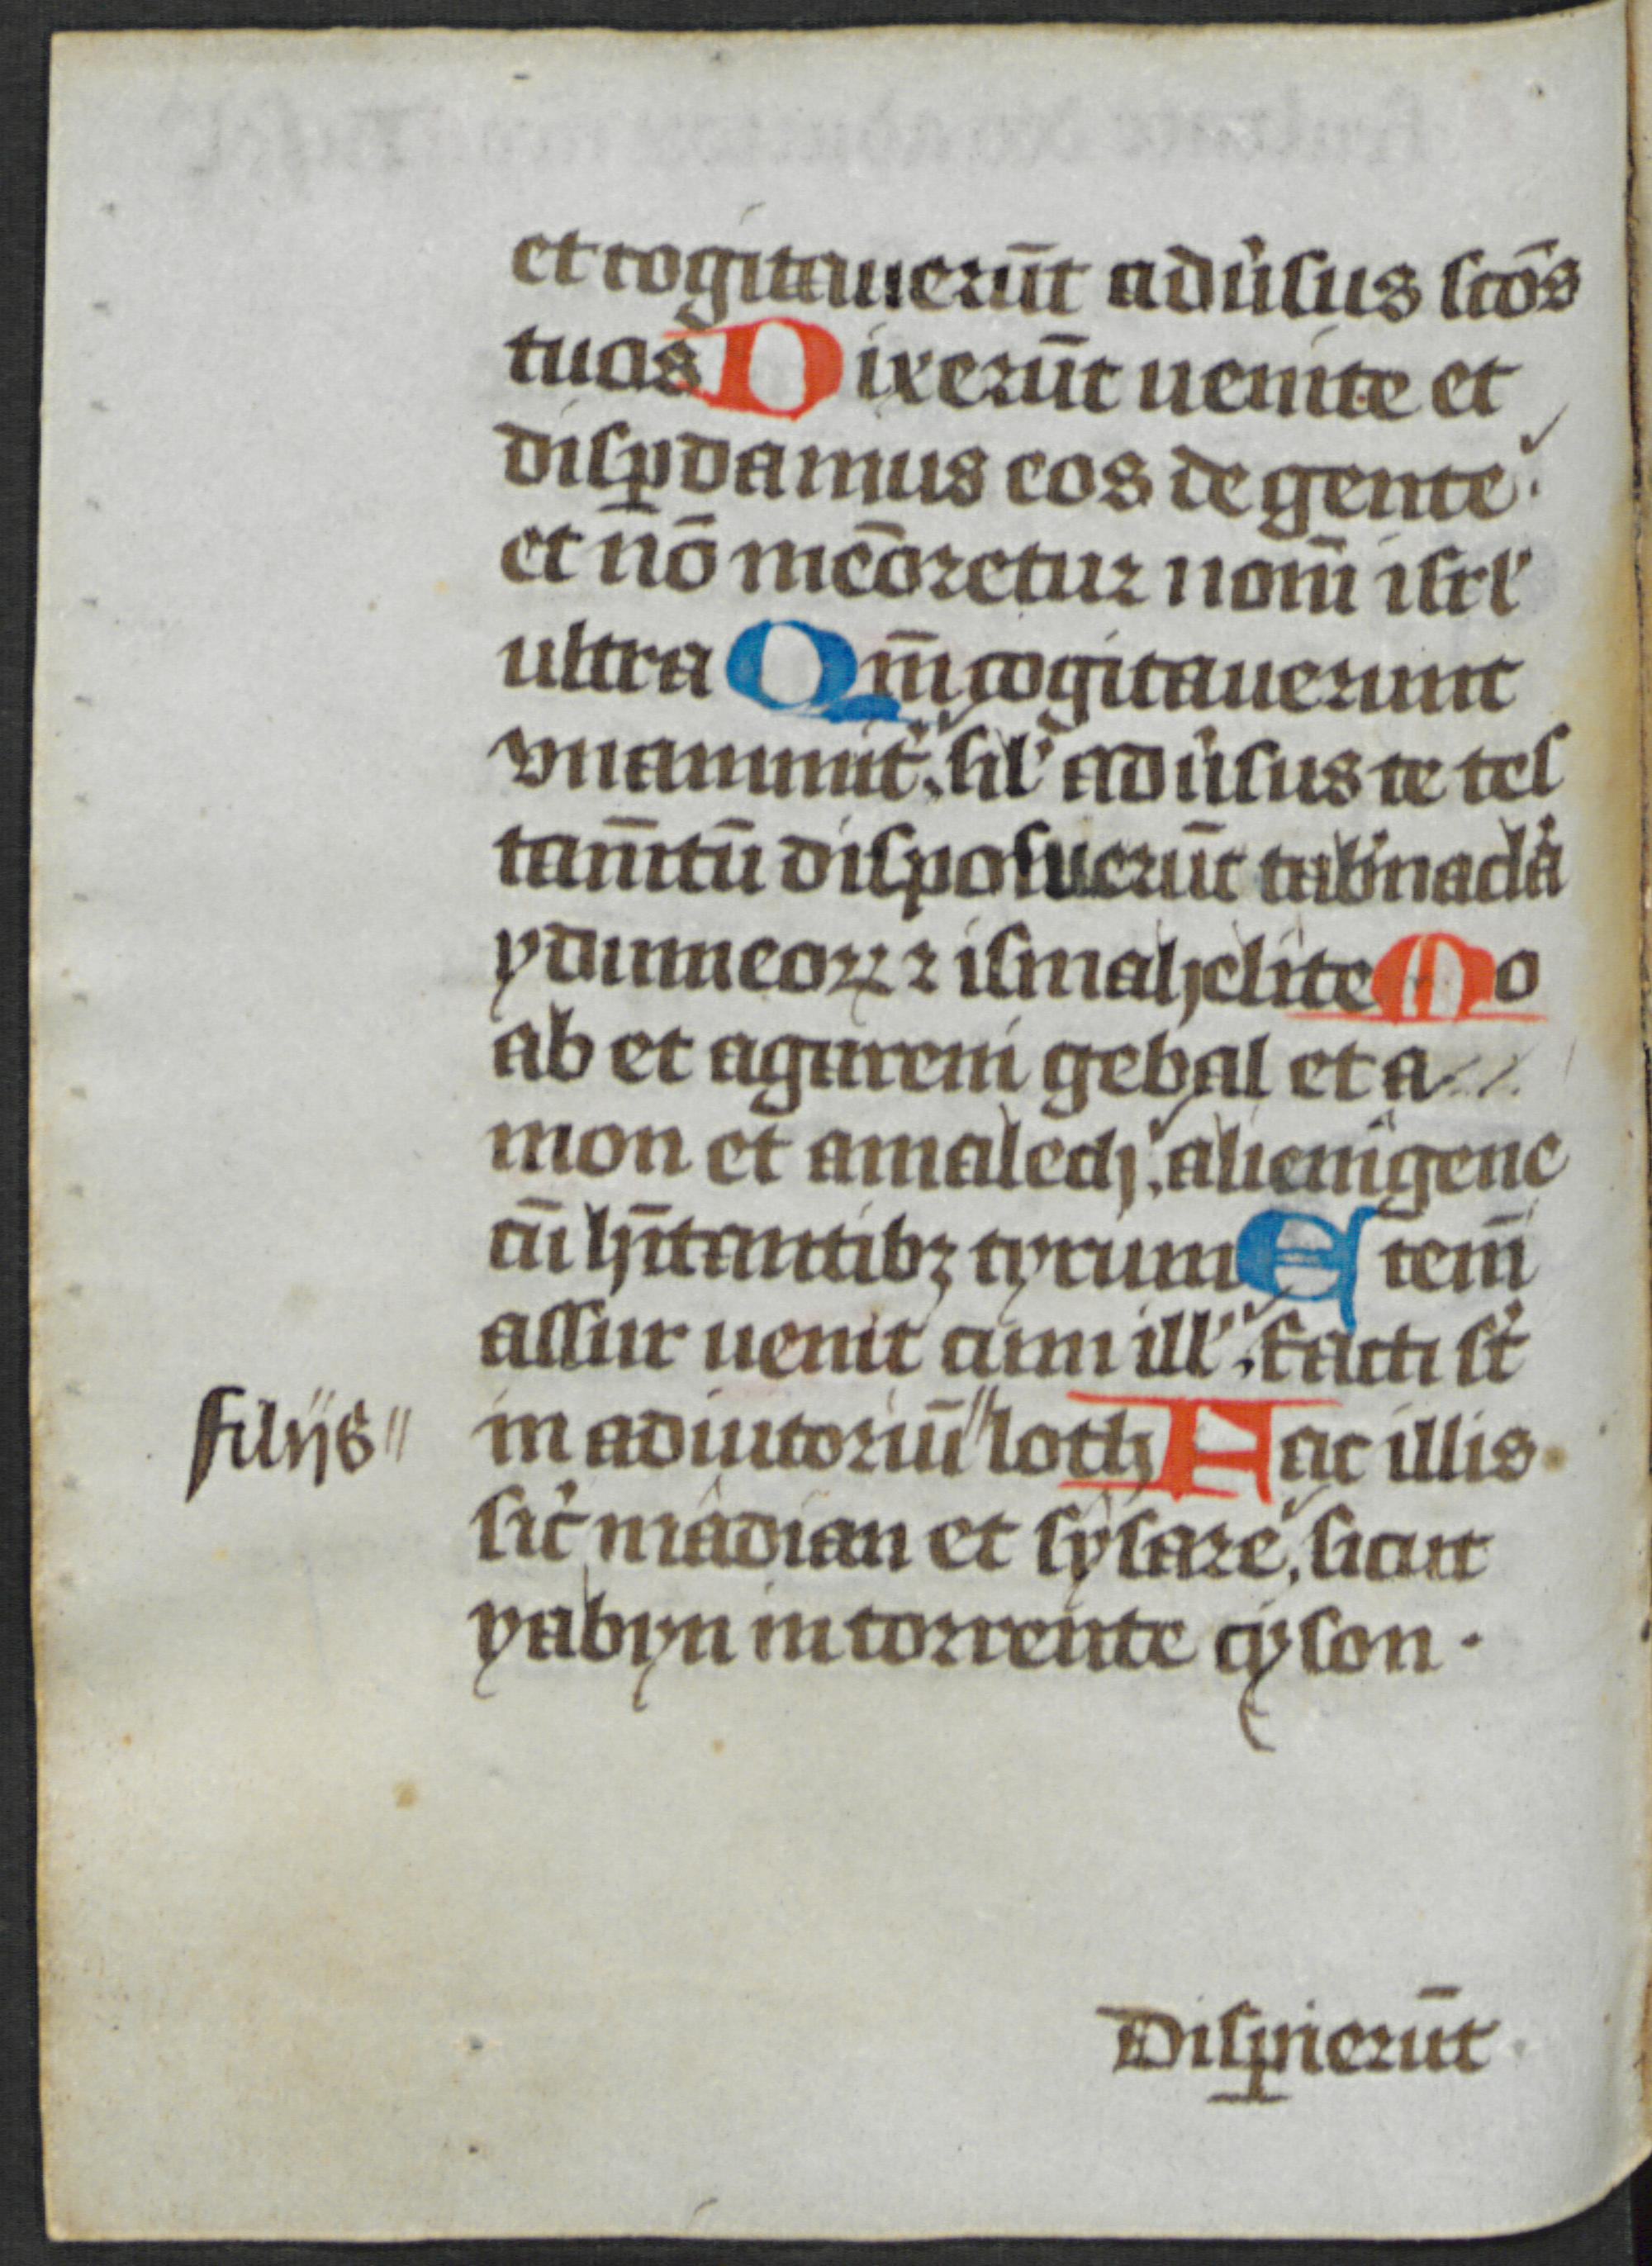 et cogitauerūt adũsus scōs
tuos Dixerūt uenite et
disꝑdamus eos de gente.
et nō mēoretur nom̄ isrl'
ultra Qm̄ cogitauerunt
vnanimit'. sil' adũsus te tes
tam̄tū disposuerūt tab'nac'la
ydumeoꝝ ⁊ ismahelite Mo
ab et agareni gebal et a
mon et amalech. alienigene
cū hītantibꝫ tyrum Etem̄
assur uenit cum ill'. facti st'
filijs" in adiutoriū" loth Fac illis
sic' madian et sysare. sicut
yabyn in torrente cyson.
Disꝑierūt